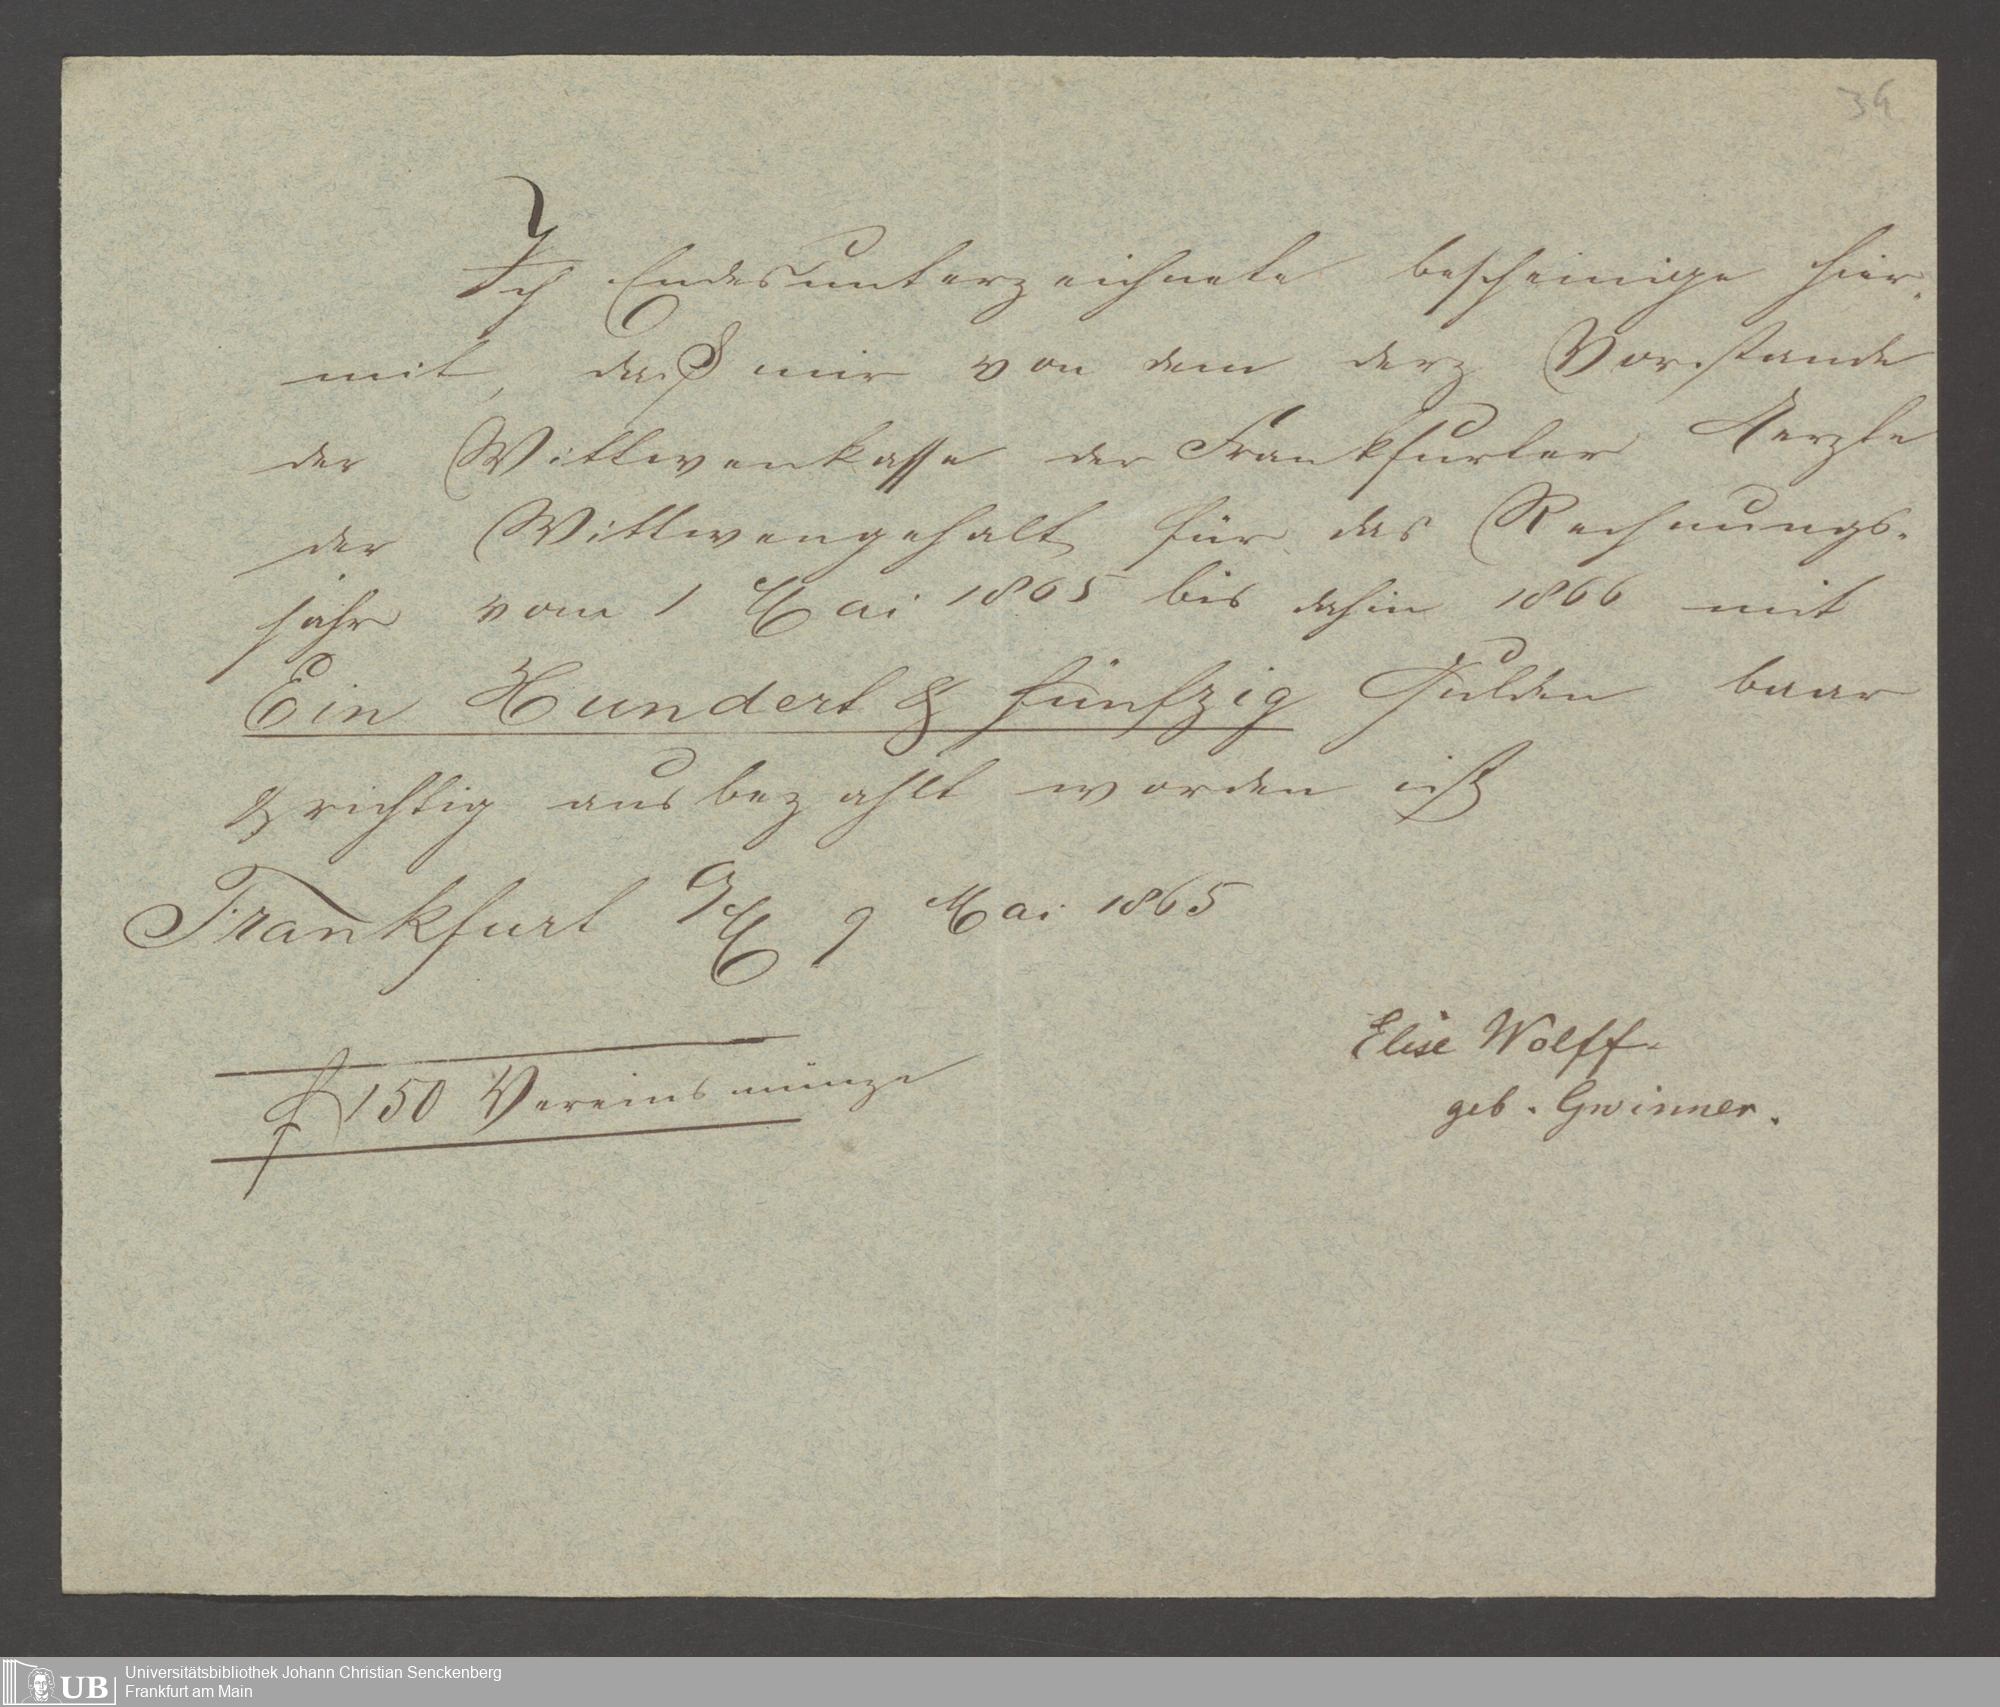 34
Ich Endesunterzeichnete bescheinige hier-
mit, daß mir von dem derz Vorstande
der Wittwenkasse der Frankfurter Aerzte
der Wittwengehalt für das Rechnungs-
jahr vom 1 Mai 1865 bis dahin 1866 mit
Ein Hundert & fünfzig Gulden baar
& richtig ausbezahlt worden ist
Frankfurt a/M 9 Mai 1865
Elise Wolff
geb. Gwinner.
f 150 Vereinsmünze
UB Universitätsbibliothek Johann Christian Senckenberg
Frankfurt am Main